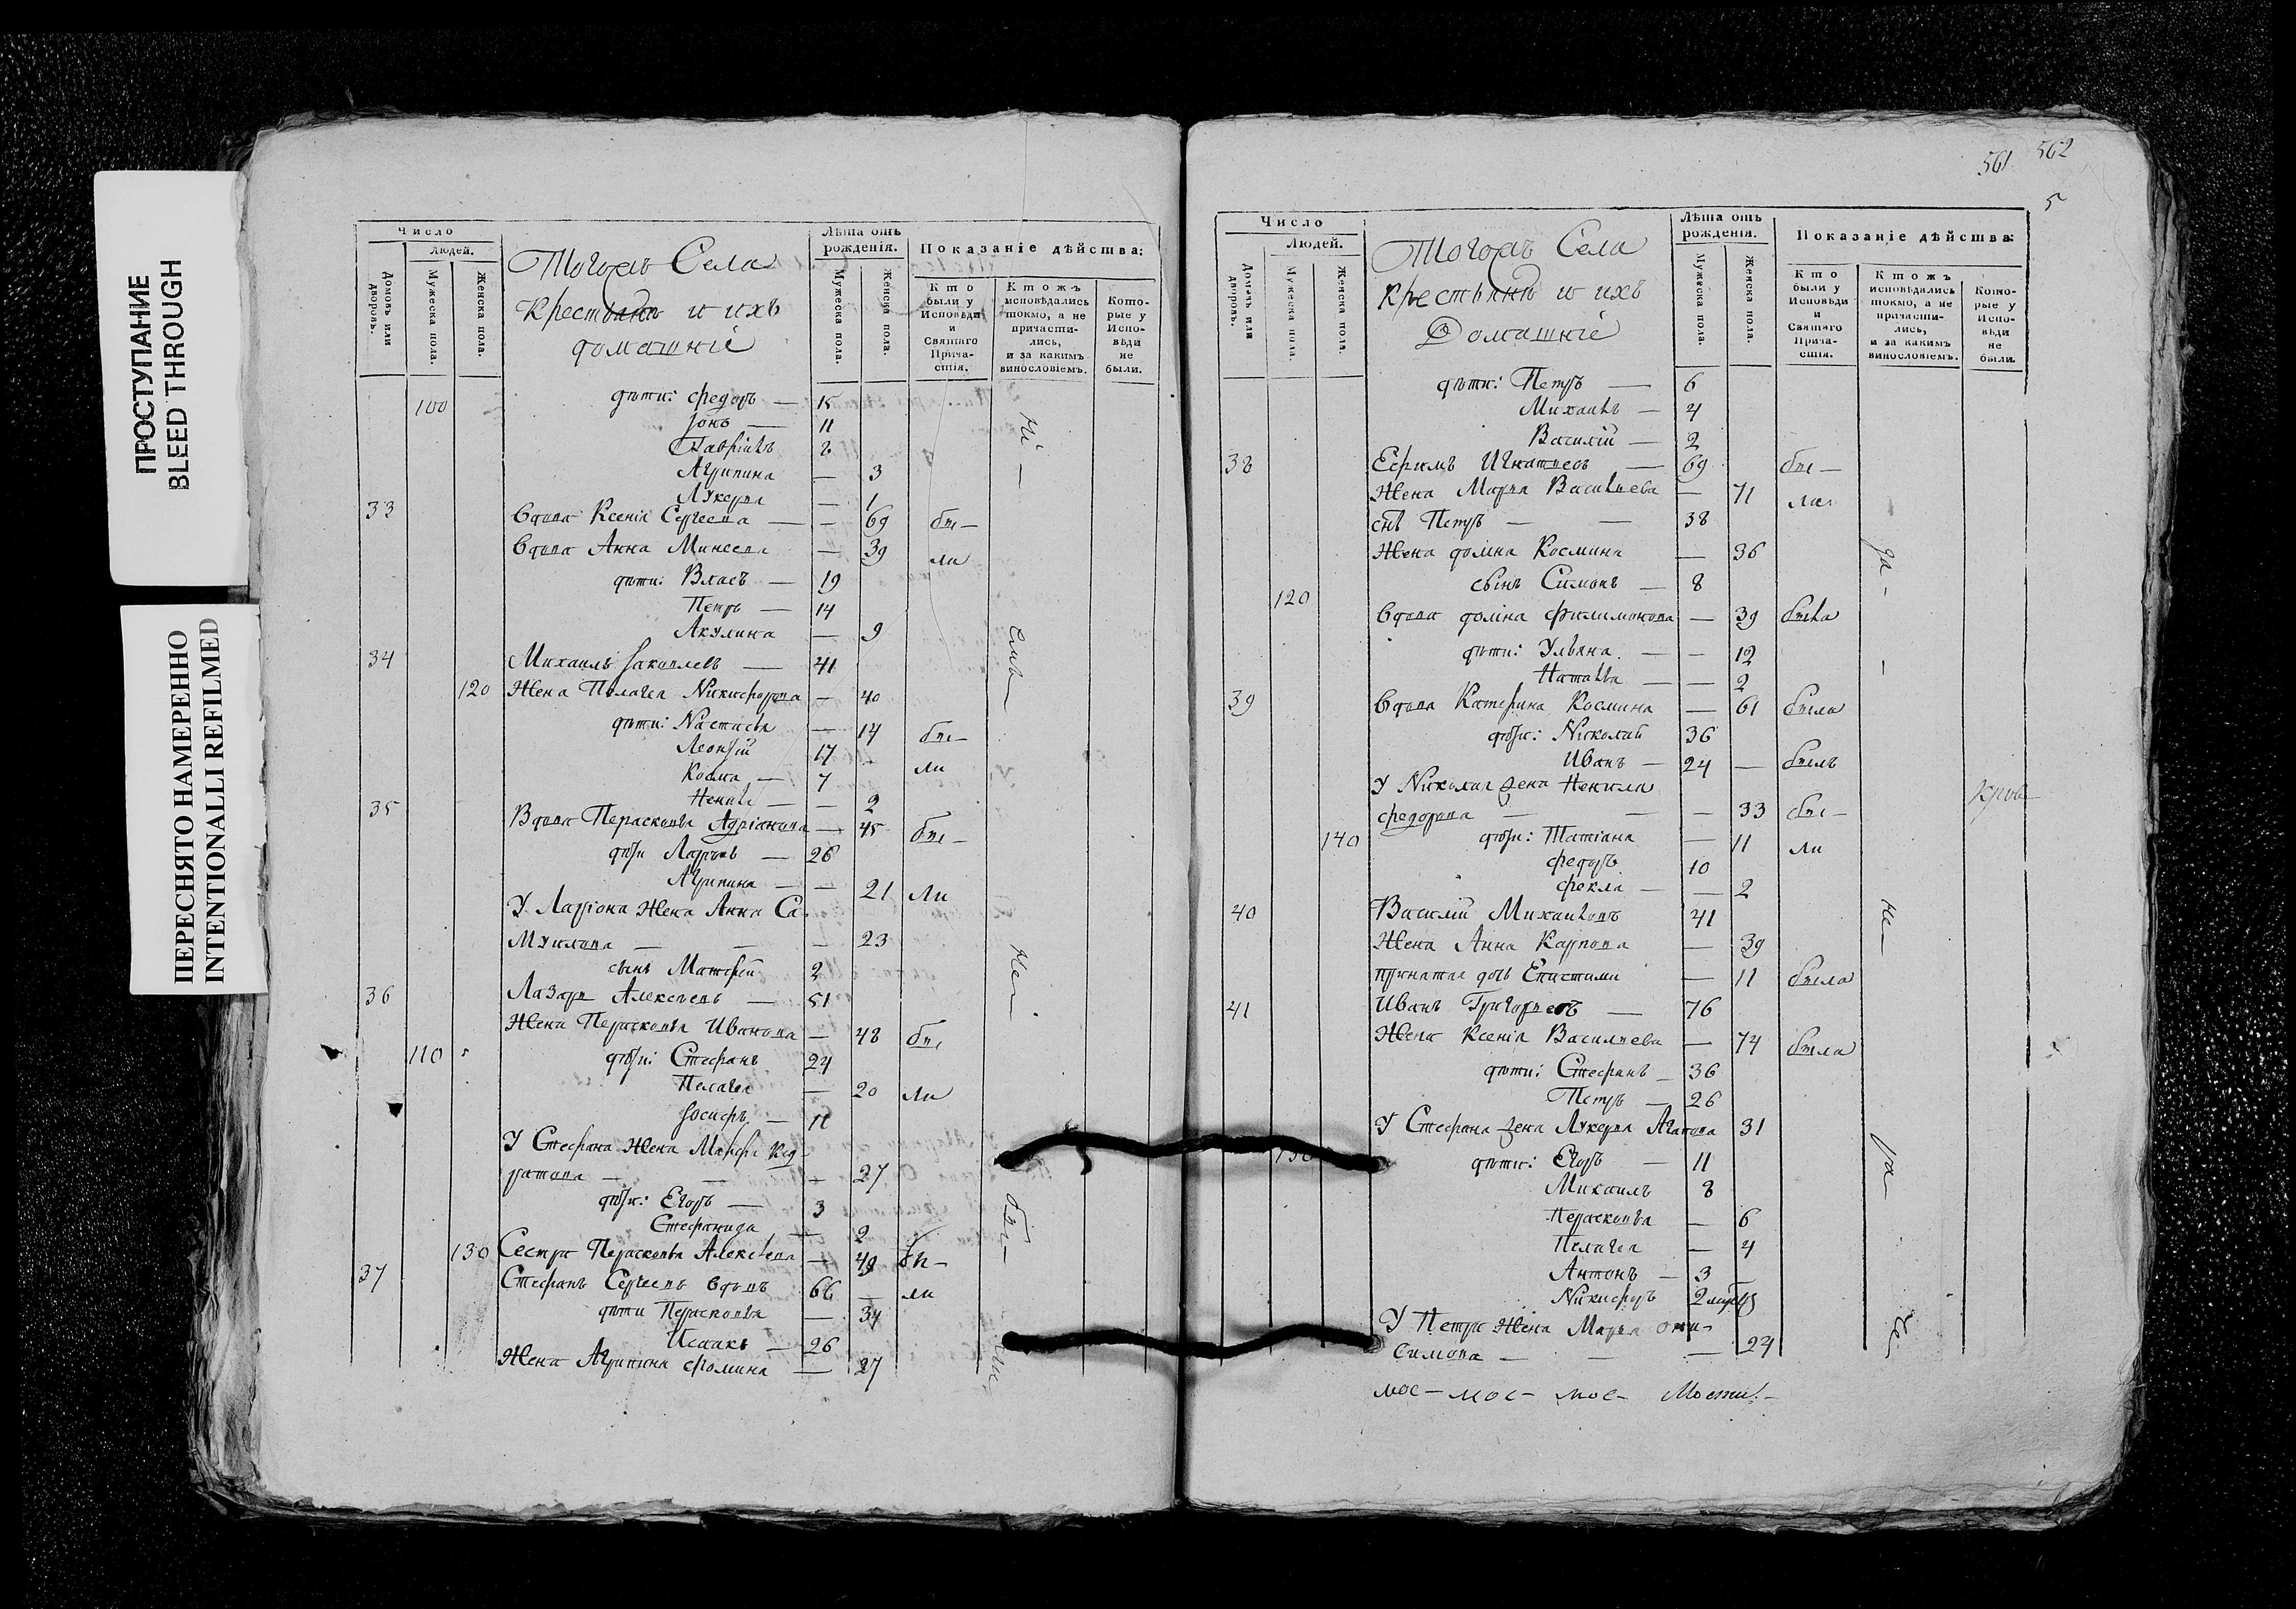 ПРОСТУПАНИЕ
BLEED THROUGH
ПЕРЕСНЯТО НАМЕРЕННО
INTENTIONALLI REFILMED
Число
Домовъ или дворовъ.
Людей.
Мужеска пола.
Женска пола.
Тогожъ Села
крестьянъ и ихъ
домашніе
Лѣта отъ рожденія.
Мужеска пола.
Женска пола.
Показаніе дѣйства:
Кто были у Исповѣди и Святаго Прича-стія.
Ктожъ исповѣдались токмо, а не причасти-лись, и за какимъ винословіемъ.
Кото-рые у Испо-вѣди не были.
100 дѣти: Федоръ — 15
Іонъ — 11
Гавріилъ 8
Агрипина — 3
Лукерья — 1
33 Вдова Ксенія Сергеева — — 69 бы—
Вдова Анна Минеева — 39 ли
дѣти: Власъ — 19
Петръ — 14
Акулина — 9
34 Михаилъ Іаковлевъ — 41
120 Жена Пелагея Никифорова — 40
дѣти: Настасья — 14 бы—
Леонтій 17 ли
Косма — 7
Ненила — — 2
35 Вдова Перасковья Адріанова — 45 бы—
дѣти Ларіонъ — 26
Агрипина — — 21 ли
У Ларіона Жена Анна Са-
муилова — — — 23
сынъ Матфей 2
36 Лазарь Алексѣевъ — 51
Жена Перасковья Иванова — 48 бы
110 дѣти: Стефанъ 24
Пелагея — 20 ли
Іосифъ — 11
У Стефана Жена Марфа Код-
ратова — — — 27
дѣти: Егоръ — 3
Стефанида — 2
130 Сестра Перасковья Алексѣева — 49 бы—
37 Стефанъ Сергеевъ вдовъ 66 — ли
дѣти Перасковья — 34
Исаакъ — 26
Жена Агрипина Фомина — 27
561 562
5
Число
Домовъ или дворовъ.
Людей.
Мужеска пола.
Женска пола.
Тогожъ Села
крестьянъ и ихъ
Домашніе
Лѣта отъ рожденія.
Мужеска пола.
Женска пола.
Показаніе дѣйства:
Кто были у Исповѣди и Святаго Прича-стія.
Ктожъ исповѣдались токмо, а не причасти-лись, и за какимъ винословіемъ.
Кото-рые у Испо-вѣди не были.
дѣти: Петръ — 6
Михаилъ — 4
Василій — 2
38 Ефимъ Игнатьевъ — 69 бы—
Жена Марья Васильева — 71 ли
снъ Петръ — — 38
Жена Домна Космина — 36
120 сынъ Симонъ — 8
Вдова Домна Филимонова — 39 была
дѣти: Ульяна — — 12
Наталья — — 2
39 Вдова Катерина Космина — 61 была
дѣти: Николай 36
Иванъ — 24 — былъ
У Николая Жена Ненила
Федорова — — — 33 бы—
140 дѣти: Татіана — 11 ли
Федоръ 10
Фекла — — 2
40 Василій Михаиловъ 41
Жена Анна Карпова — 39
принятая дочь Епистимія — 11 была
41 Иванъ Григорьевъ — 76
Жена Ксенія Васильева — 74 была
дѣти: Стефанъ — 36
Петръ — 26
У Стефана Жена Лукерья Агапова 31
130 дѣти: Егоръ — 11
Михаилъ 8
Перасковья — 6
Пелагея — 4
Антонъ — 3
Никифоръ 2
У Петра Жена Марья Они-
симова — — — 24
мос— мос— мос—